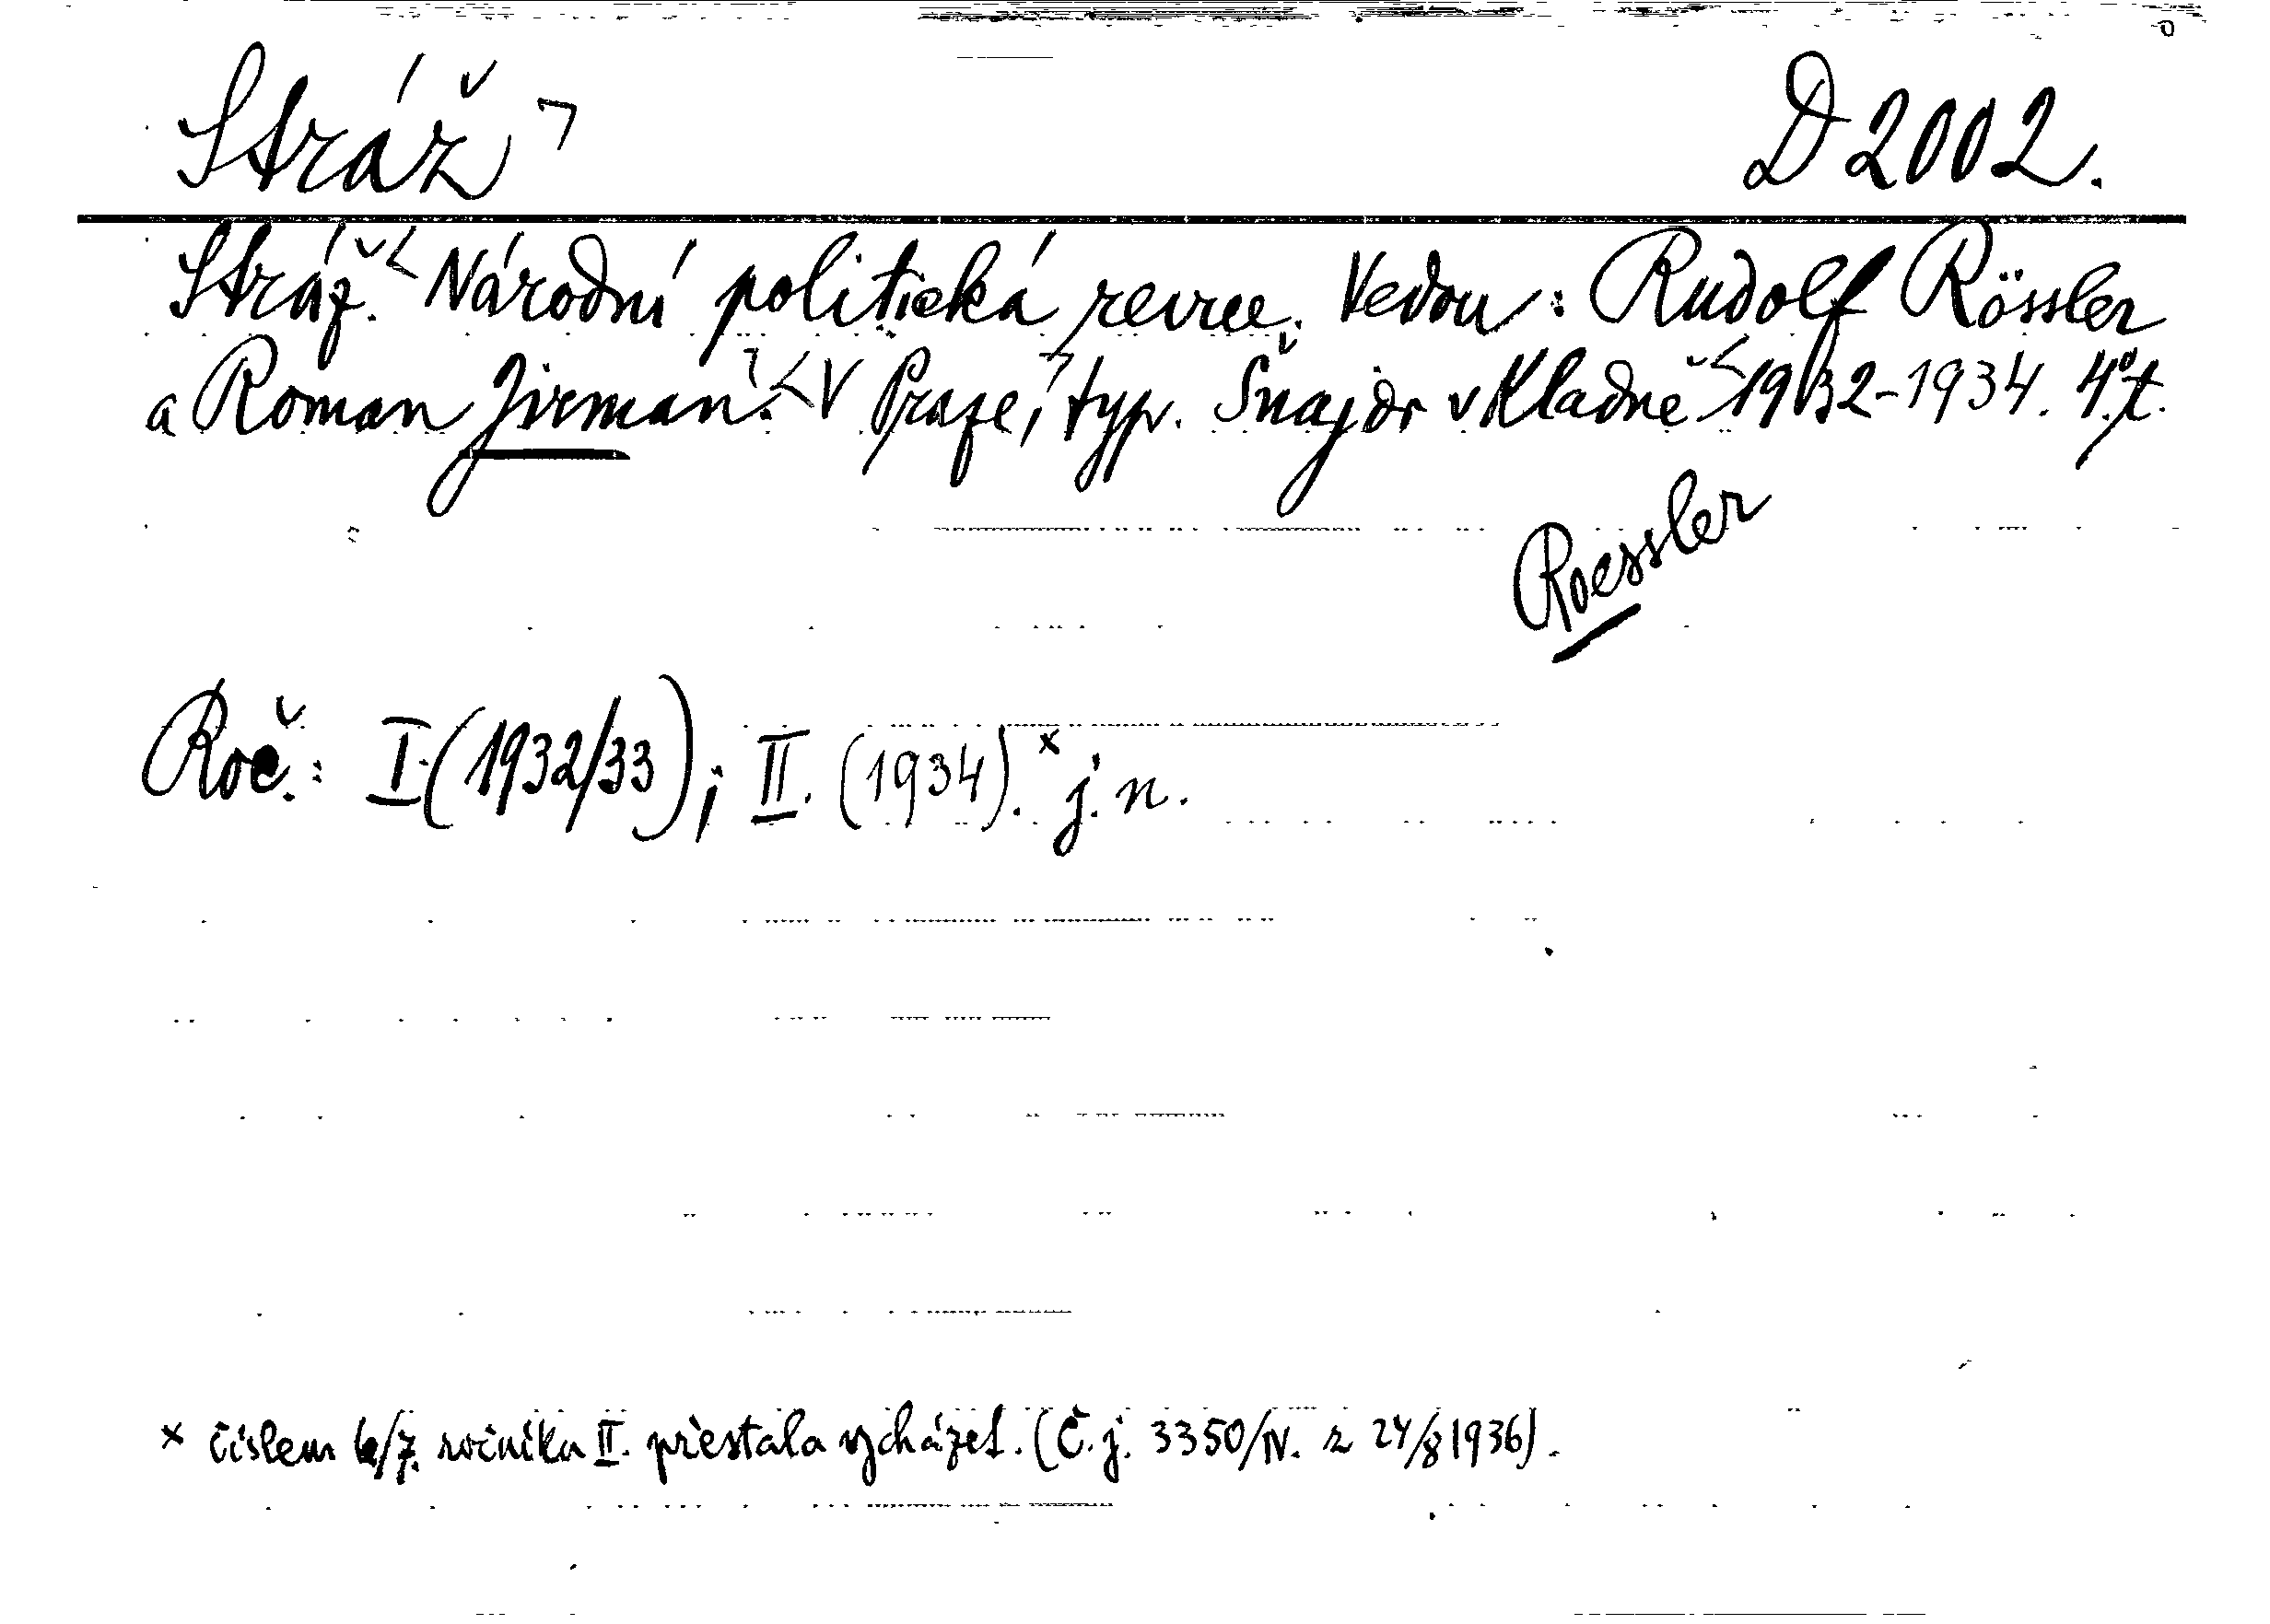 Stráž ⌝ D 2002.
Stráž.< Národní politická revue. Vedou: Rudolf Rössler
a Roman Jirman.⌝< V Praze,⌝ typ. Šnajdr v Kladně < 1932-1934. 4°. t.
Roessler
Roč.: I. (1932/33); II. (1934).ˣ j. n.
x číslem 6/7. ročníku II. přestala vycházet. (Č. j. 3350/IV. z 24/8 1936).